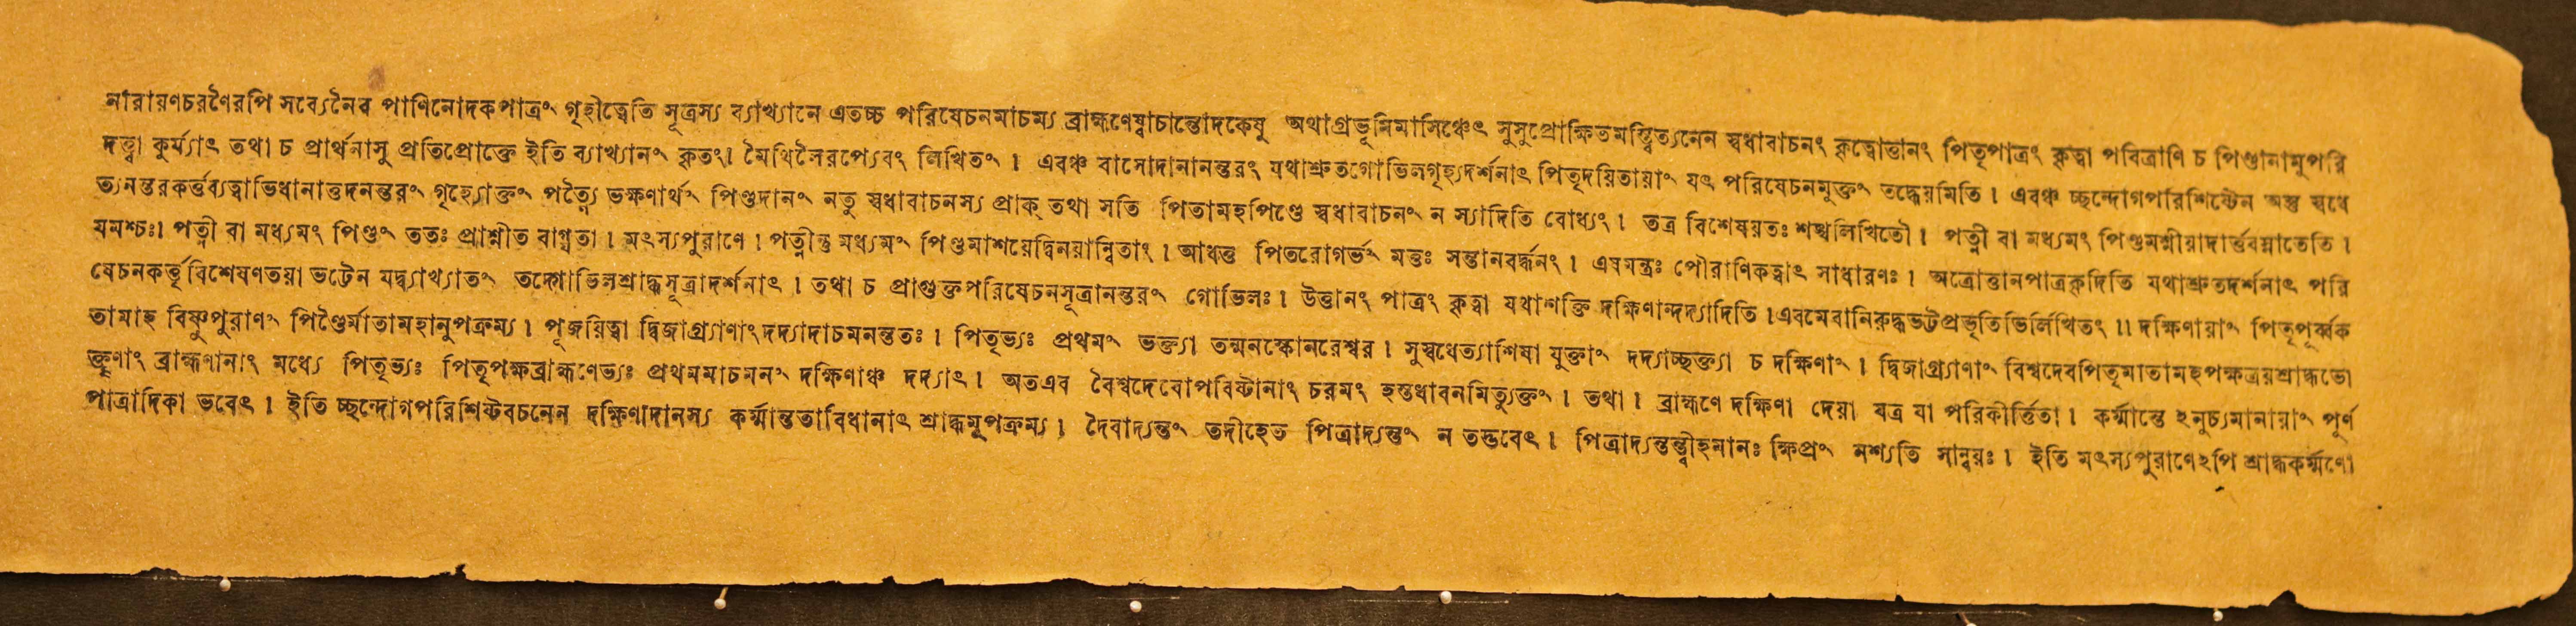 নারায়ণচরণৈরপি সব্যেনৈব পাণিনোদকপাত্রং গৃহীত্বেতি সূত্রস্য ব্যাখ্যানে এতচ্চ পরিষেচনমাচম্য ব্রাহ্মণেষ্বাচান্তোদকেষু অথাগ্রভূমিমাসিঞ্চেৎ সুসুপ্রোক্ষিতমস্ত্বিত্যনেন স্বধাবাচনং কৃত্বোত্তানং পিতৃপাত্রং কৃত্বা পবিত্রাণি চ পিণ্ডানামুপরি
দত্ত্বা কুর্য্যাৎ তথা চ প্রার্থনাসু প্রতিপ্রোক্তে ইতি ব্যাখ্যানং কৃতং। মৈথিলৈরপ্যেবং লিখিতং । এবঞ্চ বাসোদানানন্তরং যথাশ্রুতগোভিলগৃহ্যদর্শনাৎ পিতৃদয়িতায়াং যৎ পরিষেচনমুক্তং তদ্ধেয়মিতি । এবঞ্চ চ্ছন্দোগপরিশিষ্টেন অস্তু স্বধে
ত্যনন্তরকর্ত্তব্যত্বাভিধানাত্তদনন্তরং গৃহ্যোক্তং পত্ন্যৈ ভক্ষণার্থং পিণ্ডদানং নতু স্বধাবাচনস্য প্রাক্ তথা সতি পিতামহপিণ্ডে স্বধাবাচনং ন স্যাদিতি বোধ্যং । তত্র বিশেষয়তঃ শঙ্খলিখিতৌ । পত্নী বা মধ্যমং পিণ্ডমশ্নীয়াদার্ত্তবস্নাতেতি ।
যমশ্চঃ। পত্নী বা মধ্যমং পিণ্ডং ততঃ প্রাশ্নীত বাগ্যতা । মৎস্যপুরাণে । পত্নীন্তু মধ্যমং পিণ্ডমাশয়েদ্বিনয়ান্বিতাং । আধত্ত পিতরোগর্ভং মন্তঃ সন্তানবর্দ্ধনং । এষমন্ত্রঃ পৌরাণিকত্বাৎ সাধারণঃ । অত্রোত্তানপাত্রকৃদিতি যথাশ্রুতদর্শনাৎ পরি
ষেচনকর্ত্তৃবিশেষণতয়া ভট্টেন যদ্ব্যাখ্যাতং তদ্গোভিলশ্রাদ্ধসূত্রাদর্শনাৎ । তথা চ প্রাগুক্তপরিষেচনসূত্রানন্তরং গোভিলঃ । উত্তানং পাত্রং কৃত্বা যথাশক্তি দক্ষিণান্দদ্যাদিতি ।এবমেবানিরুদ্ধভট্টপ্রভৃতিভির্লিখিতং ।। দক্ষিণায়াং পিতৃপূর্ব্বক
তামাহ বিষ্ণুপুরাণং পিণ্ডৈর্মাতামহানুপক্রম্য । পূজয়িত্বা দ্বিজাগ্র্যাণাং দদ্যাদাচমনন্ততঃ । পিতৃভ্যঃ প্রথমং ভক্ত্যা তন্মনস্কোনরেশ্বর । সুস্বধেত্যাশিষা যুক্তাং দদ্যাচ্ছক্ত্যা চ দক্ষিণাং । দ্বিজাগ্র্যাণাং বিশ্বদেবপিতৃমাতামহপক্ষত্রয়শ্রাদ্ধভো
ক্তৄণাং ব্রাহ্মণানাং মধ্যে পিতৃভ্যঃ পিতৃপক্ষব্রাহ্মণেভ্যঃ প্রথমমাচমনং দক্ষিণাঞ্চ দদ্যাৎ । অতএব বৈশ্বদেবোপবিষ্টানাং চরমং হস্তধাবনমিত্যুক্তং । তথা । ব্রাহ্মণে দক্ষিণা দেয়া যত্র যা পরিকীর্ত্তিতা । কর্ম্মান্তে ঽনুচ্যমানায়াং পূর্ণ
পাত্রাদিকা ভবেৎ । ইতি চ্ছন্দোগপরিশিষ্টবচনেন দক্ষিণাদানস্য কর্ম্মান্ততাবিধানাৎ শ্রাদ্ধমুপক্রম্য । দৈবাদ্যন্তং তদীহেত পিত্রাদ্যন্তং ন তদ্ভবেৎ । পিত্রাদ্যন্তন্ত্বীহমানঃ ক্ষিপ্রং নশ্যতি সান্বয়ঃ । ইতি মৎস্যপুরাণেঽপি শ্রাদ্ধকর্ম্মণো